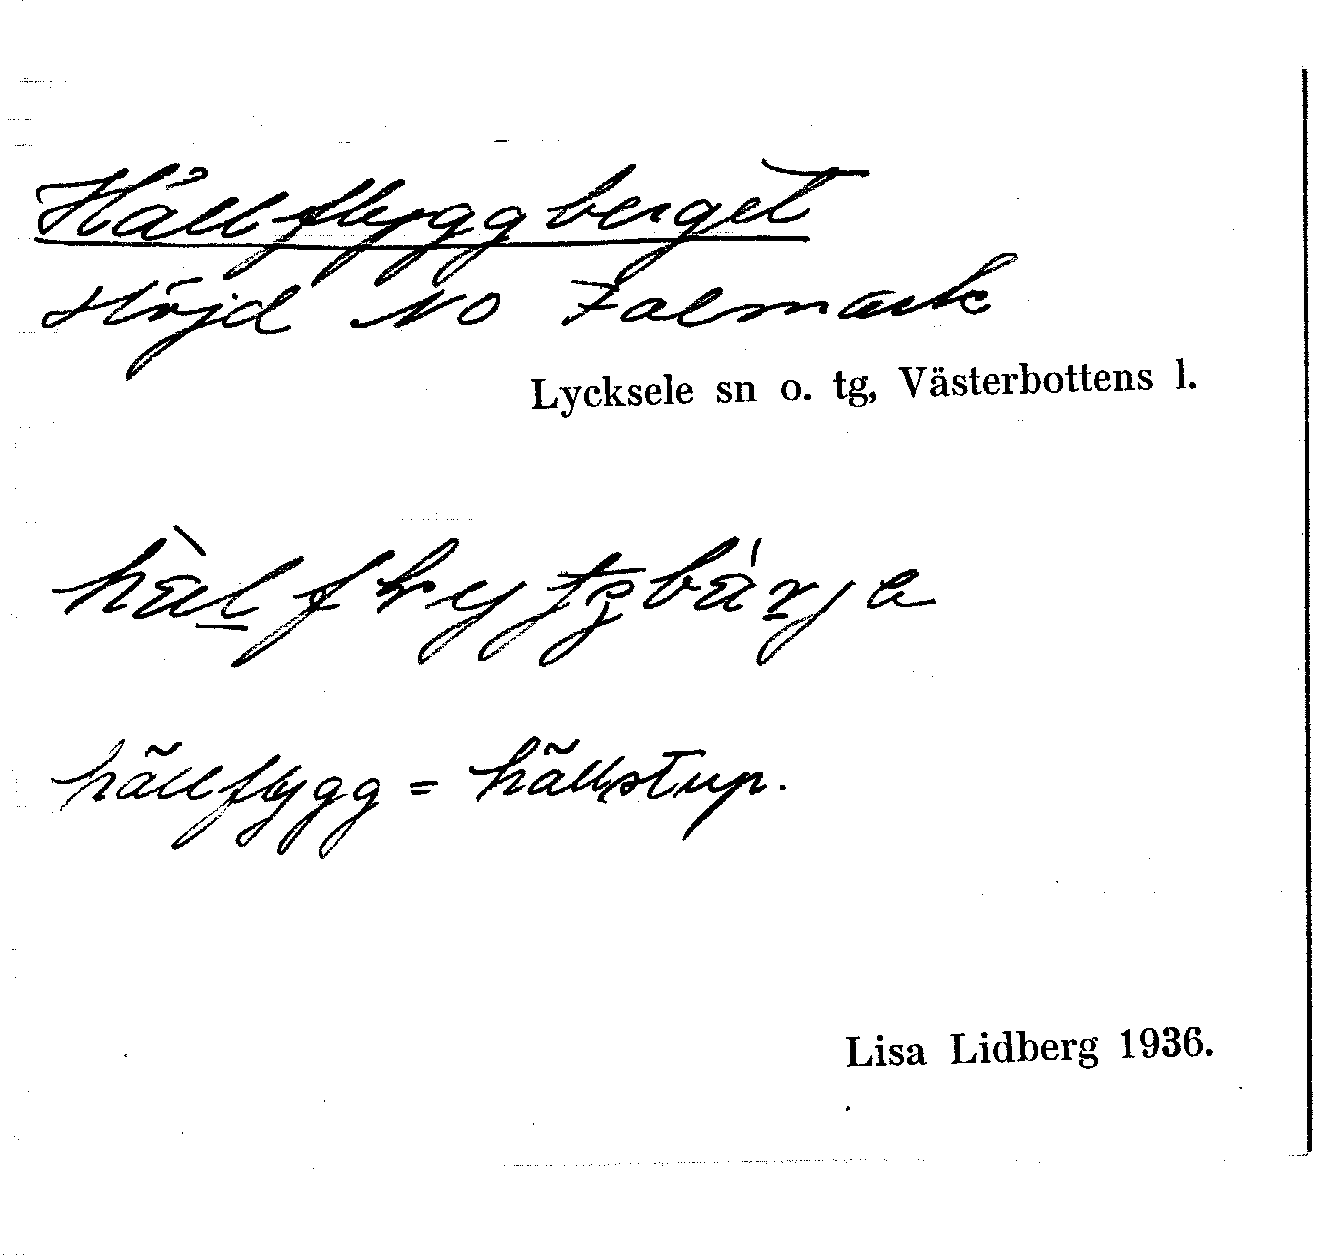 Hällflyggberget
Höjd NO Falmark
Lycksele sn o. tg, Västerbottens l.
hällflygg = hällstup.
Lisa Lidberg 1936.